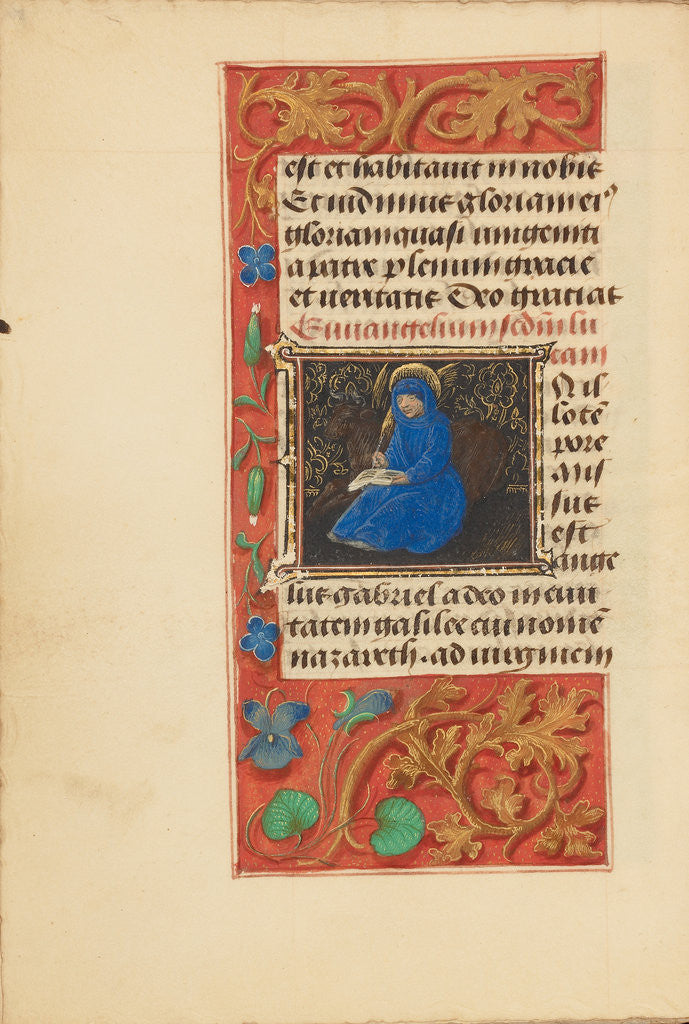 est et habitauit in nobis
Et uidimus gloriam eiꝰ
gloriam quasi unigeniti
a patre plenum gracie
et ueritatis Deo gracias
Euuangelium scd̄m lu
cam
In il
lo tē
pore
mis
sus
est
ange
lus gabriel a deo in ciui
tatem galilee cui nomē
nazareth · ad uirginem